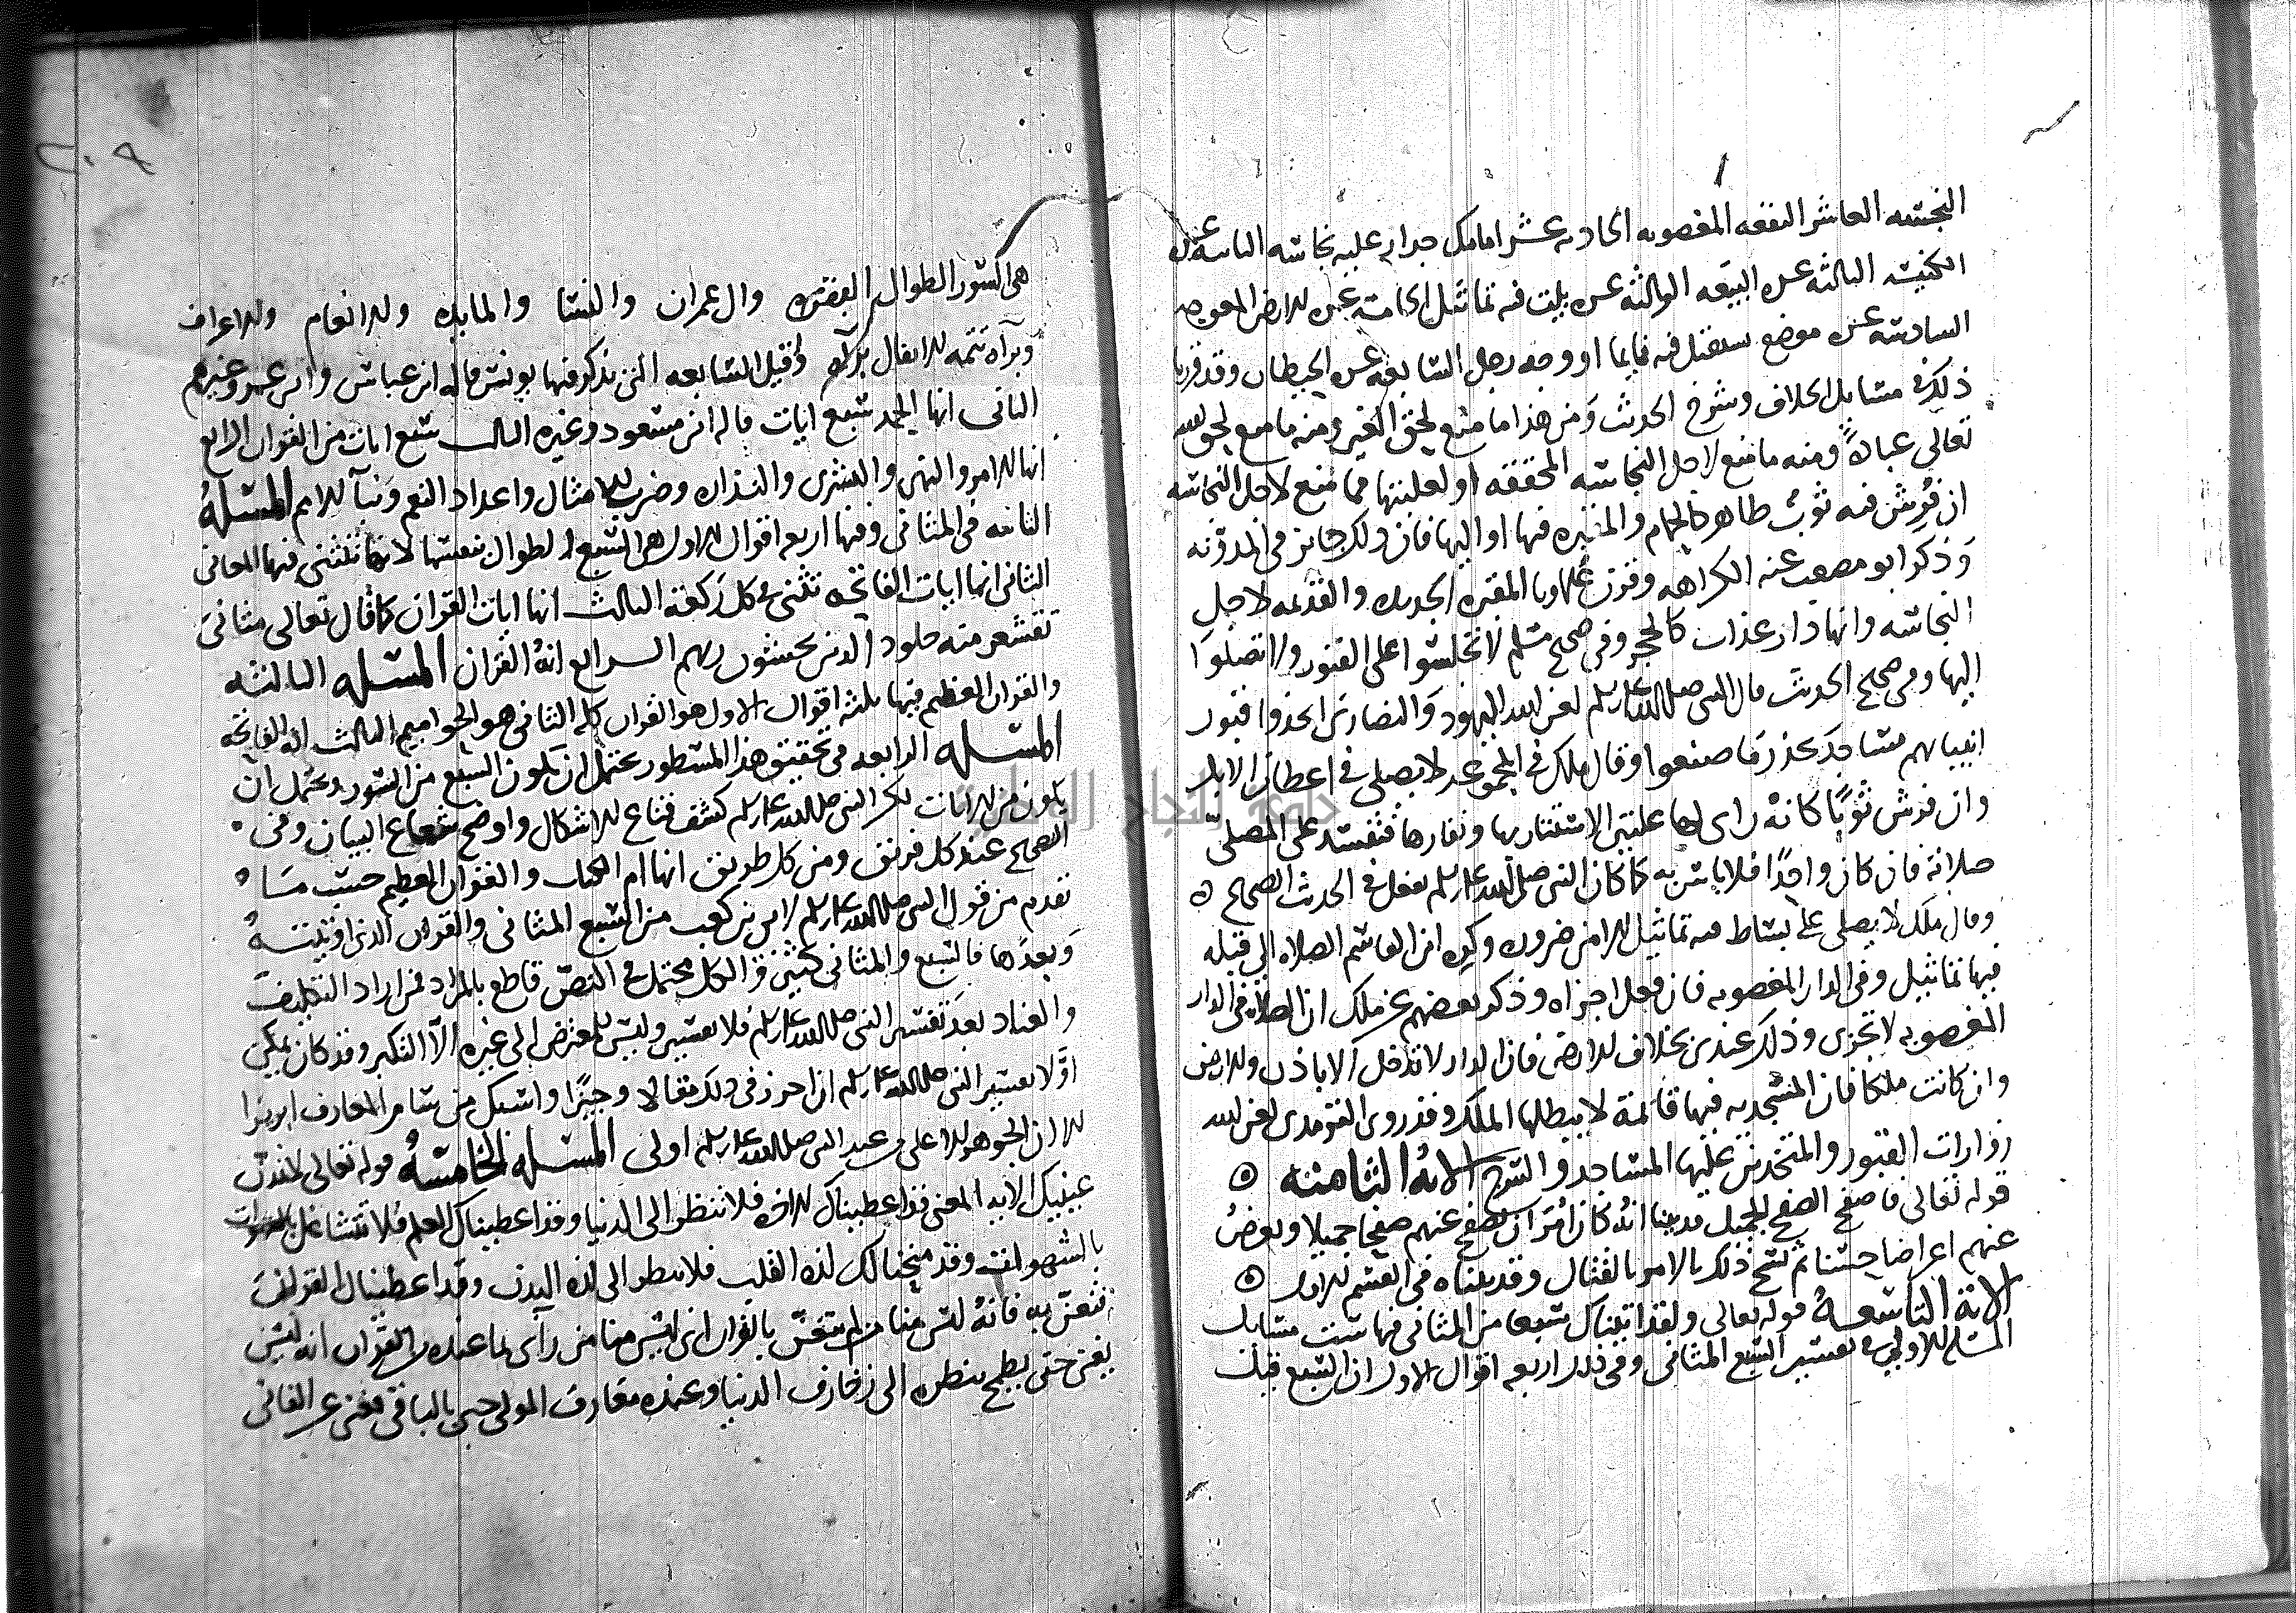 النجسه العاشر البقعه المغصوبه الحاديه عشر امامك جدار عليه نجاسه الثانيه عشره
الكنيسه الثالثه عشره البيعه الرابعه عشره بيت فيه تماثيل الخامسه عشره الارض المعوجه
السادسه عشره موضع يستقبل فيه نايما او وجه رجل السابعه عشره الحيطان وقد قررنا
ذلك في مسايل الخلاف وشرح الحديث ومن هذا ما منع لحق الغير ومنه ما منع لحق لله
تعالى عبادةً ومنه ما منع لاجل النجاسه المحققه او لغلبتها فما منع لاجل النجاسه
ان فرش فيه ثوبٌ طاهر كالحمام والمقبره فيها او اليها فان ذلك جايز في المدونه
وذكر ابو مصعب عنه الكراهه وفرق علماونا المقبره الجديده والقديمه لاجل
النجاسه وانها دار عذاب كالحجر وفي صحيح مسلم لا تجلسوا على القبور ولا تصلوا
اليها وفي صحيح الحديث قال النبي صلى الله عليه وسلم لعن الله اليهود والنصارى اتخذوا قبور
انبيايهم مساجد يحذر ما صنعوا وقال ملك في المجموعه لا يصلى في اعطان الابل
وان فرش ثوبًا كانه راى لها علتين الاستتار بها ونفارها فتفسد على المصلي
صلاته فان كان واحدًا فلا باس به كما كان النبي صلى الله عليه وسلم يفعل في الحديث الصحيح ه
وقال ملك لا يصلى على بساط فيه تماثيل الا من ضروره وكره ابن القاسم الصلاه الى قبله
فيها تماثيل وفي الدار المغصوبه فان فعل اجزاه وذكر بعضهم عن ملك ان الصلاه في الدار
المغصوبه لا تجزى وذلك عندي بخلاف الارض فان الدار لا تدخل الا باذن والارض
وان كانت ملكا فان المسجديه فيها قايمة لا يبطلها الملك وقد روى الترمذي لعن الله
زوارات القبور والمتخذين عليها المساجد والسرج الايه الثامنه ه
قوله تعالى فاصفح الصفح الجميل قد بينا انه كان امر ان يصفح عنهم صفحا جميلا ويعرض
عنهم اعراضا حسنا ثم نسخ ذلك بالامر بالقتال وقد بيناه في القسم الاول ه
الايه التاسعه قوله تعالى ولقد اتيناك سبعا من المثاني فيها ست مسايل
المسله الاولى في تفسير السبع المثاني وفي ذلك اربعه اقوال الاول ان السبع قيل
هي السور الطوال البقره وال عمران والنسا والمايده والانعام والاعراف
وبراه تتمه الانفال براه وقيل السابعه التي يذكر فيها يونس قاله ابن عباس وابن عمر وغيرهم
الثاني انها الحمد سبع ايات قاله ابن مسعود وغيره الثالث سبع ايات من القران الرابع
انها الامر والنهي والبشرى والنذاره وضرب الامثال واعداد النعم ونبآ الامم المسلهُ
الثانيه في المثاني وفيها اربعه اقوال الاول هي السبع الطوال بنفسها لانها تثنى فيها المعاني
الثاني انها ايات الفاتحه تثنى في كل ركعه الثالث انها ايات القران كما قال تعالى مثاني
تقشعر منه جلود الذين يخشون ربهم الرابع انه القران المسله الثالثه
والقران العظيم فيها ثلثه اقوال الاول هو القران كله الثاني هو الحواميم الثالث انها الفاتحه
المسله الرابعه في تحقيق هذا المسطور يحتمل ان يكون السبع من السور ويحتمل ان
يكون من الايات لكن النبي صلى الله عليه وسلم كشف قناع الاشكال واوضح شعاع البيان وفي
الصحيح عند كل فريق ومن كل طريق انها ام الكتاب والقران العظيم حسب ما
تقدم من قول النبي صلى الله عليه وسلم لابي بن كعب هي السبع المثاني والقران الذي اوتيته
وبعد هذا فالسبع والمثاني كثير والكل محتمل في النص قاطع بالمراد فمن اراد التكليف
والعناد بعد تفسير النبي صلى الله عليه وسلم فلا تفسير وليس للمعترض الى غيره الا النكير وقد كان يمكن
لولا تفسير النبي صلى الله عليه وسلم ان احرر في ذلك مقالا وجيزًا واسبك من سنام المعارف ابريزا
الا ان الجوهر الاعلى من عند النبي صلى الله عليه وسلم اولى المسله الخامسهُ قوله تعالى لا تمدن
عينيك الايه المعنى قد اعطيناك الاخره فلا تنظر الى الدنيا وقد اعطيناك العلم فلا تتشاغل
بالشهوات وقد منحنا لك لذه القلب فلا تنظر الى لذه البدن وقد اعطيناك القران
فتغن به فانه ليس منا من لم يتغن بالقران اي ليس منا من راى بما عنده من القران انه ليس
بغني حتى يطمح بنظره الى زخارف الدنيا وعنده معارف المولى حيى بالباقي فغني عن الفاني